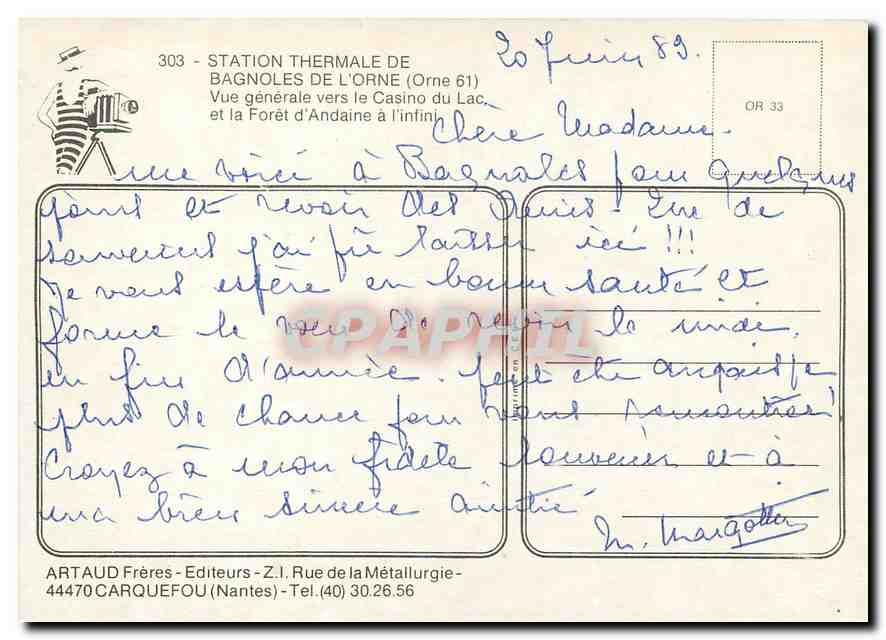 20 Juin 89.
303 - STATION THERMALE DE
BAGNOLES DE L'ORNE (Orne 61)
Vue générale vers le Casino du Lac
et la Forêt d'Andaine à l'infini
OR 33
Chère Madame.
me voici à Bagnoles pour quelques
jours et revoir des Amis - que de
souvenirs j'ai pu laisser ici !!!
Je vous espère en bonne santé et
forme le voeu de revoir le midi
en fin d'année. peut être aurais je
plus de chance pour vous rencontrer!
Croyez à mon fidèle souvenir et à
ma bien sincère amitié
M.
CPAPHIL
Imprimé en C.E.
ARTAUD Frères - Editeurs - Z.I. Rue de la Métallurgie -
44470 CARQUEFOU (Nantes) - Tel. (40) 30.26.56